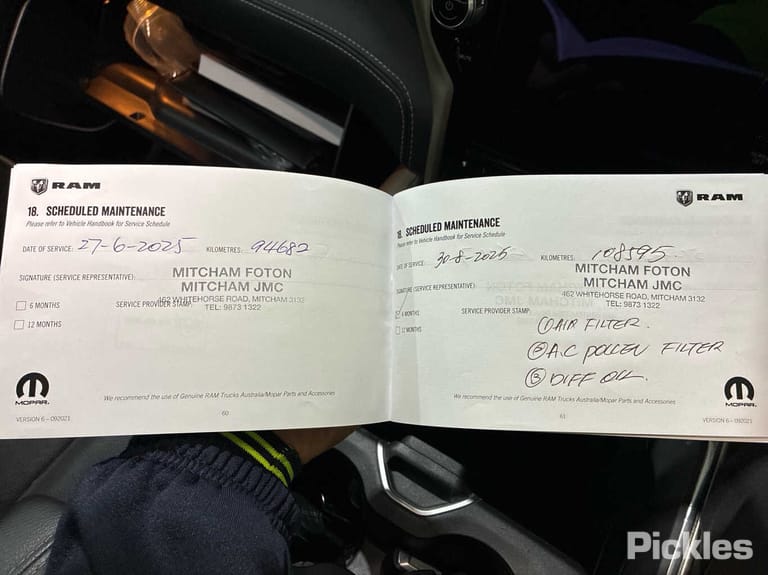 RAM
18. SCHEDULED MAINTENANCE
Please refer to Vehicle Handbook for Service Schedule
DATE OF SERVICE: 27-6-2025 KILOMETRES: 94682
SIGNATURE (SERVICE REPRESENTATIVE):
MITCHAM FOTON
MITCHAM JMC
462 WHITEHORSE ROAD, MITCHAM 3132
TEL: 9873 1322
6 MONTHS SERVICE PROVIDER STAMP:
12 MONTHS
MOPAR
We recommend the use of Genuine RAM Trucks Australia/Mopar Parts and Accessories
VERSION 6 – 092021
60
RAM
18. SCHEDULED MAINTENANCE
Please refer to Vehicle Handbook for Service Schedule
DATE OF SERVICE: 30-8-2025 KILOMETRES: 108595
SIGNATURE (SERVICE REPRESENTATIVE):
MITCHAM FOTON
MITCHAM JMC
462 WHITEHORSE ROAD, MITCHAM 3132
TEL: 9873 1322
6 MONTHS SERVICE PROVIDER STAMP:
12 MONTHS
① AIR FILTER.
② A.C POLLEN FILTER
③ DIFF OIL.
MOPAR
We recommend the use of Genuine RAM Trucks Australia/Mopar Parts and Accessories
61
VERSION 6 – 092021
Pickles